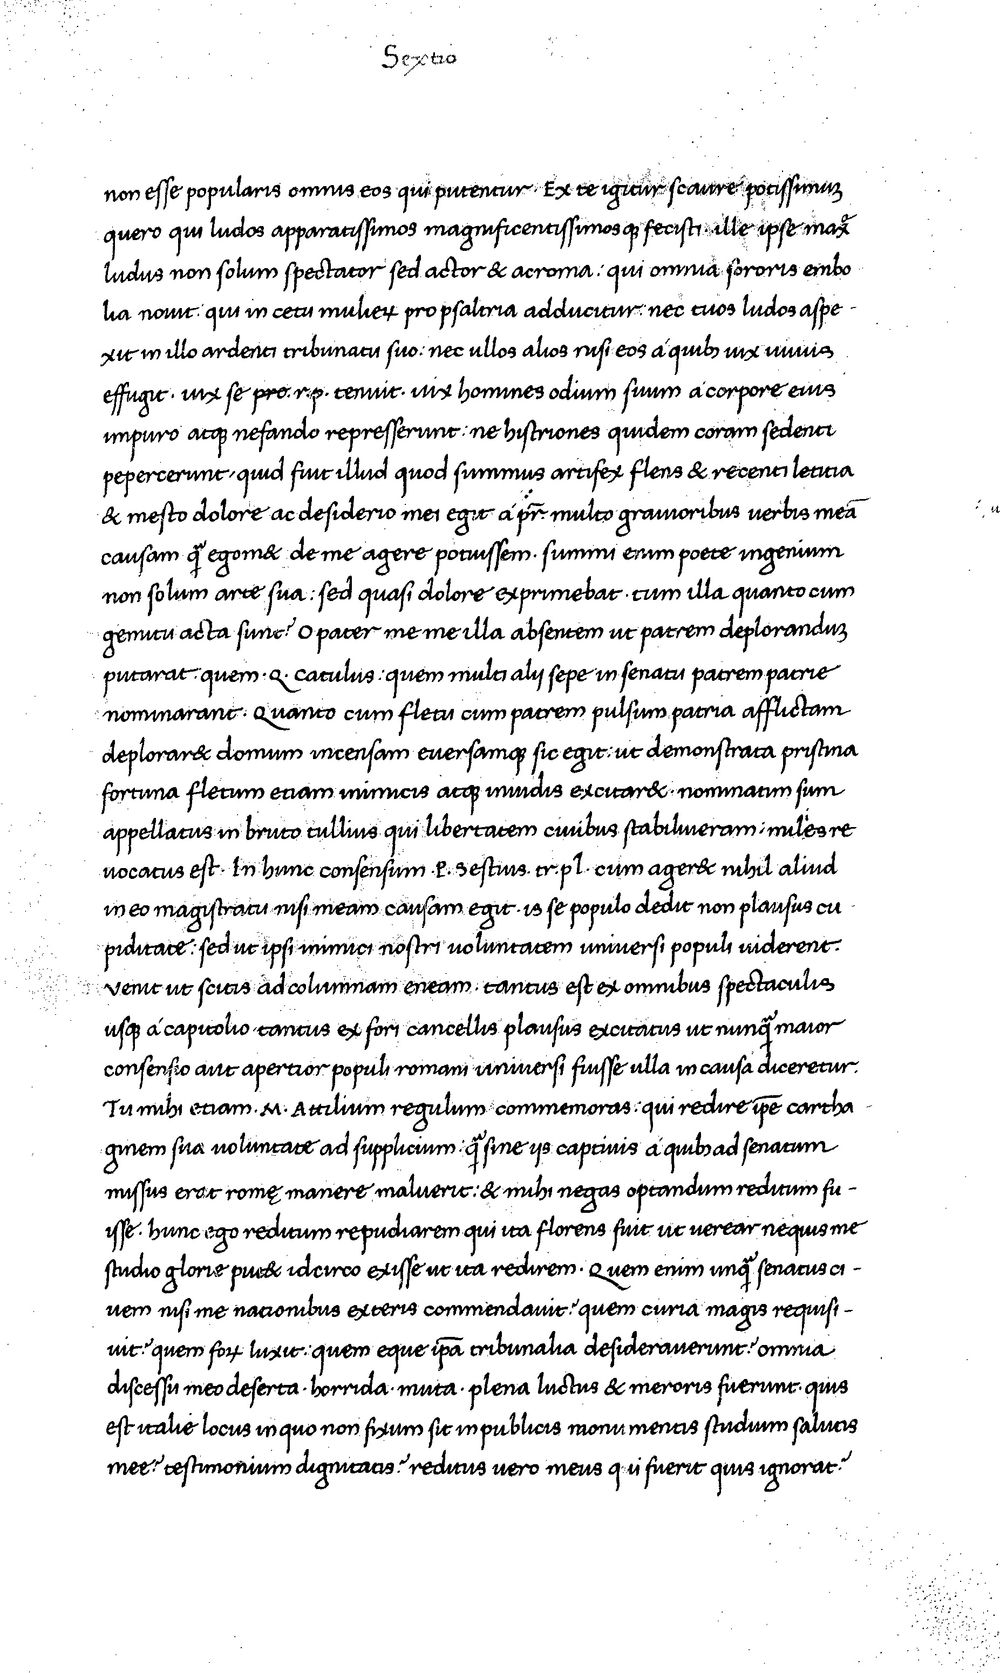 Sextio
non esse popularis omnis eos qui putentur · Ex te igitur scaure potissimuʒ
quero qui ludos apparatissimos magnificentissimosqꝫ fecisti · ille ipse maxͣ
ludus non solum spectator sed actor & acroma : qui omnia sororis embo
lia nouit : qui in cetu mulieꝝ pro psaltria adducitur : nec tuos ludos aspe -
xit in illo ardenti tribunatu suo : nec ullos alios nisi eos á quibꝫ uix uiuus
effugit · uix se pro · r.p. tenuit · uix homines odium suum á corpore eius
impuro atqꝫ nefando represserunt : ne histriones quidem coram sedenti
pepercerunt · quid fuit illud quod summus artifex flens & recenti letitia
& mesto dolore ac desiderio mei egit á pr̄ · multo grauioribus uerbis meā
causam qᷓ egom& de me agere potuissem · summi enim poete ingenium
non solum arte sua : sed quasi dolore exprimebat · tum illa quanto cum
gemitu acta sunt? O pater me me illa absentem ut patrem deploranduʒ
putarat : quem · Q · Catulus : quem multi alij sepe in senatu patrem patrie
nominarant · Quanto cum fletu cum patrem pulsum patria afflictam
deplorar& domum incensam euersamqꝫ sic egit : ut demonstrata pristina
fortuna fletum etiam inimicis atqꝫ inuidis excitar& · nominatim sum
appellatus in bruto tullius qui libertatem ciuibus stabiliueram : milies re
uocatus est · In hunc consensum · P. Sestius · tr.pl · cum ager& nihil aliud
in eo magistratu nisi meam causam egit · is se populo dedit non plausus cu -
piditate : sed ut ipsi inimici nostri uoluntatem uniuersi populi uiderent :
Venit ut scitis ad columnam eneam · tantus est ex omnibus spectaculis
usqꝫ á capitolio · tantus ex fori cancellis plausus excitatus ut nunqᷓ maior
consensio aut apertior populi romani uniuersi fuisse ulla in causa diceretur :
Tu mihi etiam · M · Attilium regulum commemoras : qui redire ip̄e cartha -
ginem sua uoluntate ad supplicium : qᷓ sine ijs captiuis á quibꝫ ad senatum
missus erat romę manere maluerit : & mihi negas optandum reditum fu -
isse · hunc ego reditum repudiarem qui ita florens fuit ut uerear nequis me
studio glorie put& idcirco exisse ut ita redirem · Quem enim unqᷓ senatus ci -
uem nisi me nationibus exteris commendauit? quem curia magis requisi -
uit? quem foꝝ luxit : quem eque ip̄a tribunalia desiderauerunt? omnia
discessu meo deserta · horrida · muta · plena luctus & meroris fuerunt · quis
est italie locus in quo non fixum sit in publicis monumentis studium salutis
mee? testimonium dignitatis? reditus uero meus qui fuerit quis ignorat?